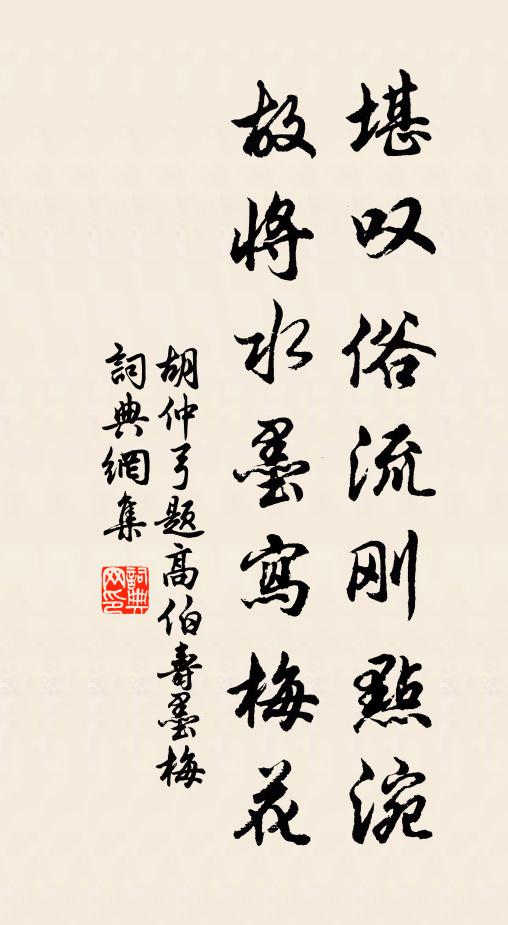 堪叹俗流刚點涴
故将水墨寫梅花
胡仲弓题高伯壽墨梅
詞典網集
詞典网印